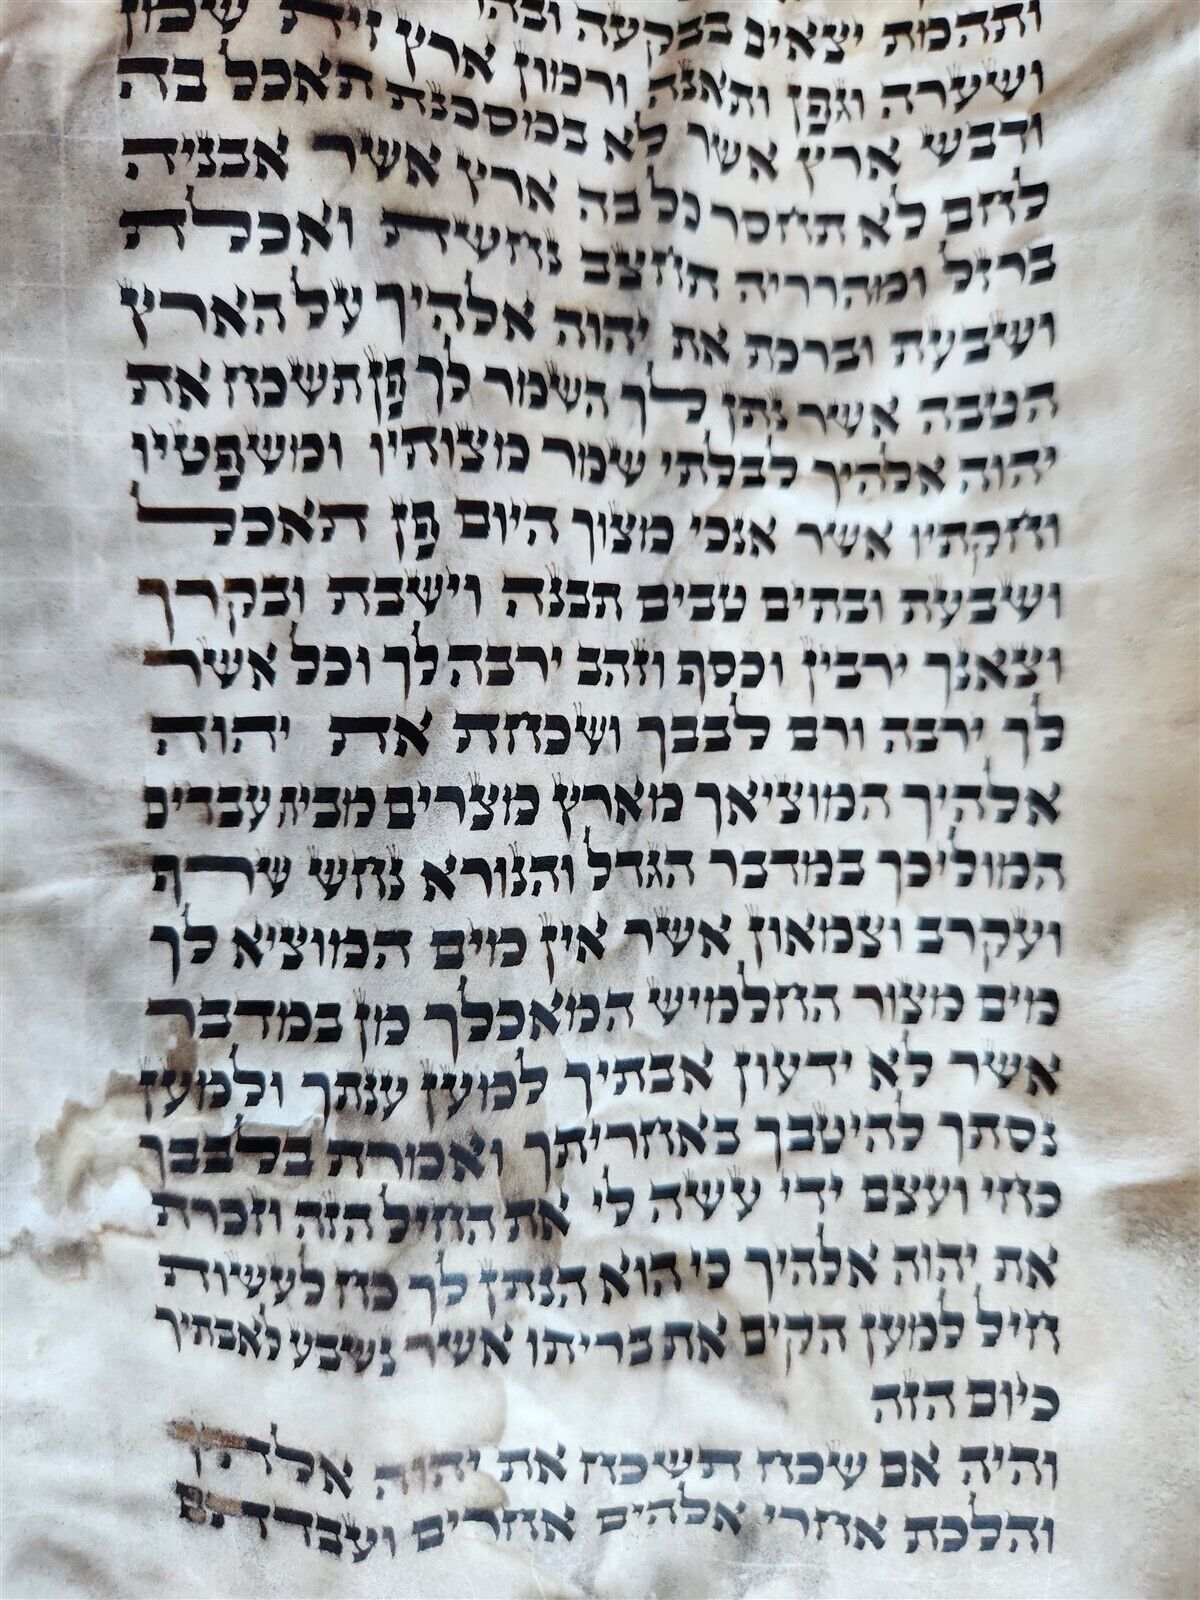 ותהמת יצאים בבקעה ובהר
ושערה וגפן ותאנה ורמון ארץ זית שמן
ודבש ארץ אשר לא במסכנת תאכל בה
לחם לא תחסר כל בה ארץ אשר אבניה
ברזל ומהרריה תחצב נחשת ואכלת
ושבעת וברכת את יהוה אלהיך על הארץ
הטבה אשר נתן לך השמר לך פן תשכח את
יהוה אלהיך לבלתי שמר מצותיו ומשפטיו
וחקתיו אשר אנכי מצוך היום פן תאכל
ושבעת ובתים טבים תבנה וישבת ובקרך
וצאנך ירבין וכסף וזהב ירבה לך וכל אשר
לך ירבה ורם לבבך ושכחת את יהוה
אלהיך המוציאך מארץ מצרים מבית עבדים
המוליכך במדבר הגדל והנורא נחש שרף
ועקרב וצמאון אשר אין מים המוציא לך
מים מצור החלמיש המאכלך מן במדבר
אשר לא ידעון אבתיך למען ענתך ולמען
נסתך להיטבך באחריתך ואמרת בלבבך
כחי ועצם ידי עשה לי את החיל הזה וזכרת
את יהוה אלהיך כי הוא הנתן לך כח לעשות
חיל למען הקים את בריתו אשר נשבע לאבתיך
כיום הזה
והיה אם שכח תשכח את יהוה אלהיך
והלכת אחרי אלהים אחרים ועבדתם